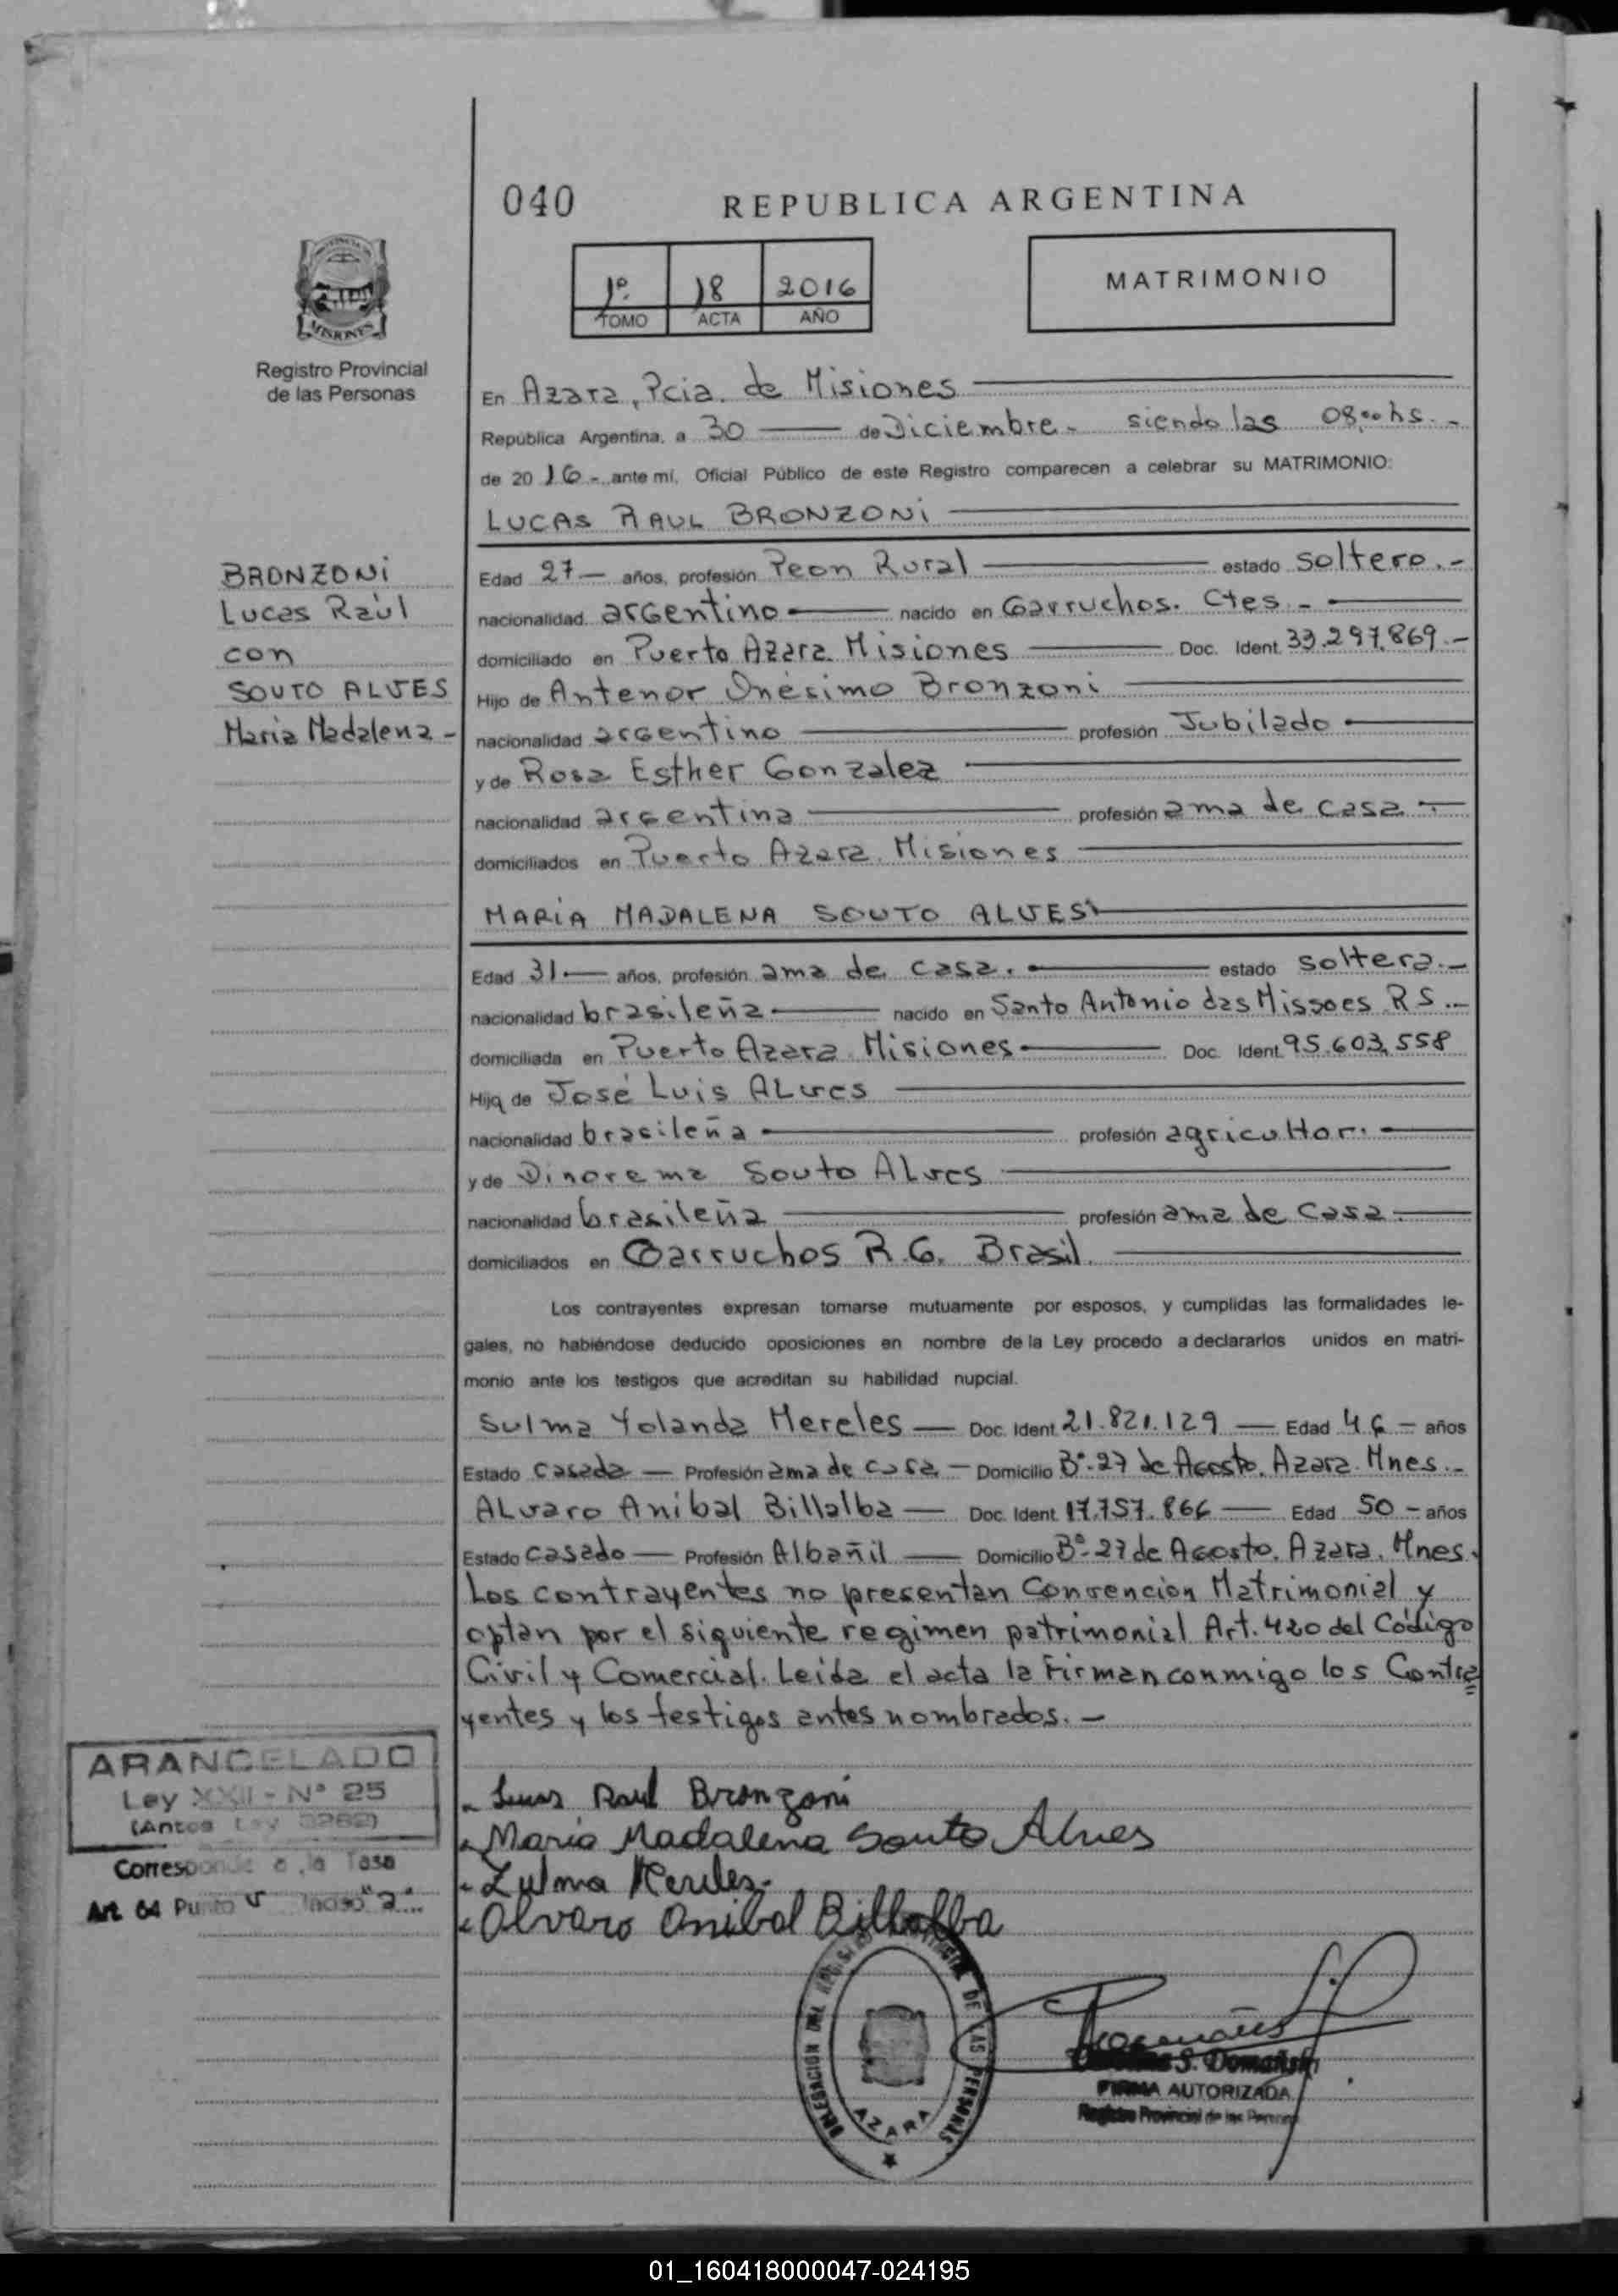 040
REPUBLICA ARGENTINA
1º
18
2016
TOMO
ACTA
AÑO
MATRIMONIO
PROVINCIA DE
MISIONES
Registro Provincial
de las Personas
En Azara, Pcia. de Misiones
República Argentina, a 30 de Diciembre.- siendo las 08,00 hs.-
de 2016- ante mí, Oficial Público de este Registro comparecen a celebrar su MATRIMONIO:
LUCAS RAUL BRONZONI
BRONZONI
Lucas Raúl
con
SOUTO ALVES
Maria Madalena -
Edad 27 años, profesión Peon Rural estado soltero.-
nacionalidad argentino nacido en Garruchos. Ctes.-
domiciliado en Puerto Azara. Misiones Doc. Ident. 33.297.869.-
Hijo de Antenor Onésimo Bronzoni
nacionalidad argentino profesión Jubilado
y de Rosa Esther Gonzalez
nacionalidad argentina profesión ama de casa.-
domiciliados en Puerto Azara. Misiones
MARÍA MADALENA SOUTO ALVES
Edad 31 años, profesión ama de casa. estado soltera.-
nacionalidad brasileña nacido en Santo Antonio das Missoes R S.-
domiciliada en Puerto Azara. Misiones Doc. Ident. 95.603.558
Hija de José Luis Alves
nacionalidad brasileña profesión agricultor.
y de Dinorema Souto Alves
nacionalidad brasileña profesión ama de casa.
domiciliados en Garruchos R.G. Brasil.
Los contrayentes expresan tomarse mutuamente por esposos, y cumplidas las formalidades le-
gales, no habiéndose deducido oposiciones en nombre de la Ley procedo a declararlos unidos en matri-
monio ante los testigos que acreditan su habilidad nupcial.
Sulma Yolanda Mereles Doc. Ident. 21.821.129 Edad 46 - años
Estado casada Profesión ama de casa - Domicilio Bº-27 de Agosto. Azara. Mnes.-
Alvaro Anibal Billalba Doc. Ident. 17.757.866 Edad 50 - años
Estado casado Profesión Albañil Domicilio Bº-27 de Agosto. Azara. Mnes.
Los contrayentes no presentan Convencion Matrimonial y
optan por el siguiente regimen patrimonial Art. 420 del Código
Civil y Comercial. Leída el acta la firman conmigo los Contra
yentes y los testigos antes nombrados.-
ARANCELADO
Ley XXII - Nº 25
(Antes Ley 3262)
Corresponde a la Tasa
Art. 64 Punto V Inciso "a"
- Lucas Raul Bronzoni
- Maria Madalena Souto Alves
- Zulma Mereles.
- Alvaro Anibal Billalba
DELEGACION DEL REGISTRO PROVINCIAL DE LAS PERSONAS
AZARA
S. Domañski
FIRMA AUTORIZADA
Registro Provincial de las Personas
01_160418000047-024195